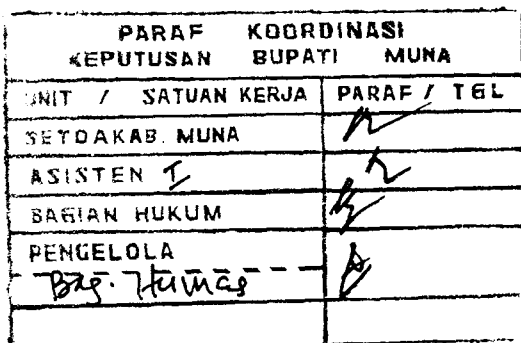 PARAF KOORDINASI
KEPUTUSAN BUPATI MUNA
UNIT / SATUAN KERJA PARAF / TGL
SETDAKAB. MUNA
ASISTEN I
BAGIAN HUKUM
PENGELOLA
Bag. Humas